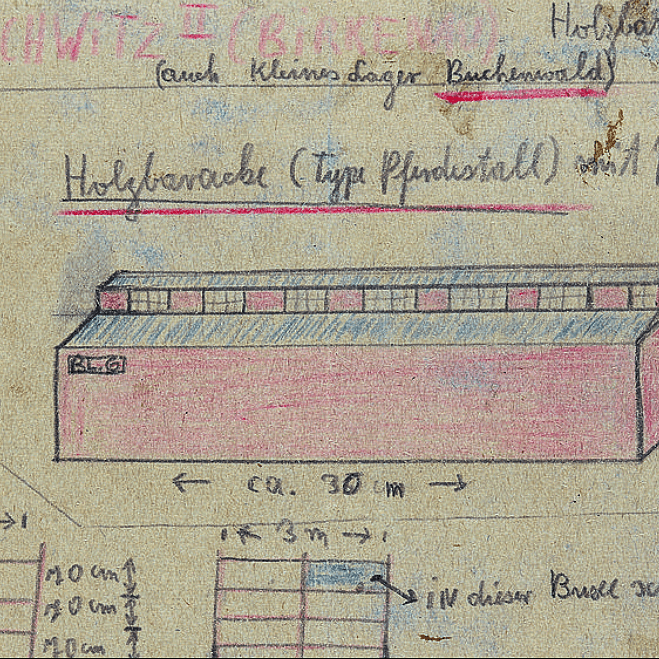 CHWITZ II (BIRKENAU) Holzba
(auch Kleines Lager Buchenwald)
Holzbaracke (Type Pferdestall) mit
BL.6
← ca. 30 m →
← 3 m →
70 cm
70 cm
70 cm
in dieser